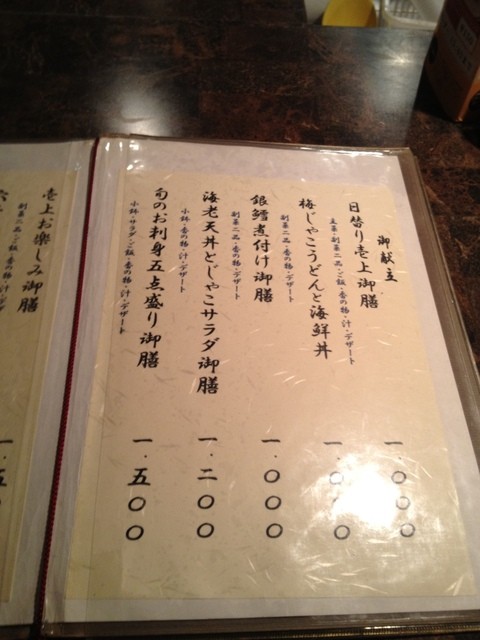 御献立
日替り壱上御膳
主菜・副菜二品・ご飯・香の物・汁・デザート
一.〇〇〇
梅じゃこうどんと海鮮丼
副菜二品・香の物・デザート
一.〇〇〇
銀鱈煮付け御膳
副菜二品・ご飯・香の物・汁・デザート
一.〇〇〇
海老天丼とじゃこサラダ御膳
小鉢・香の物・汁・デザート
一.二〇〇
旬のお刺身五点盛り御膳
小鉢・サラダ・ご飯・香の物・汁・デザート
一.五〇〇
壱上お楽しみ御膳
副菜二品・ご飯・香の物・汁・デザート
一.五